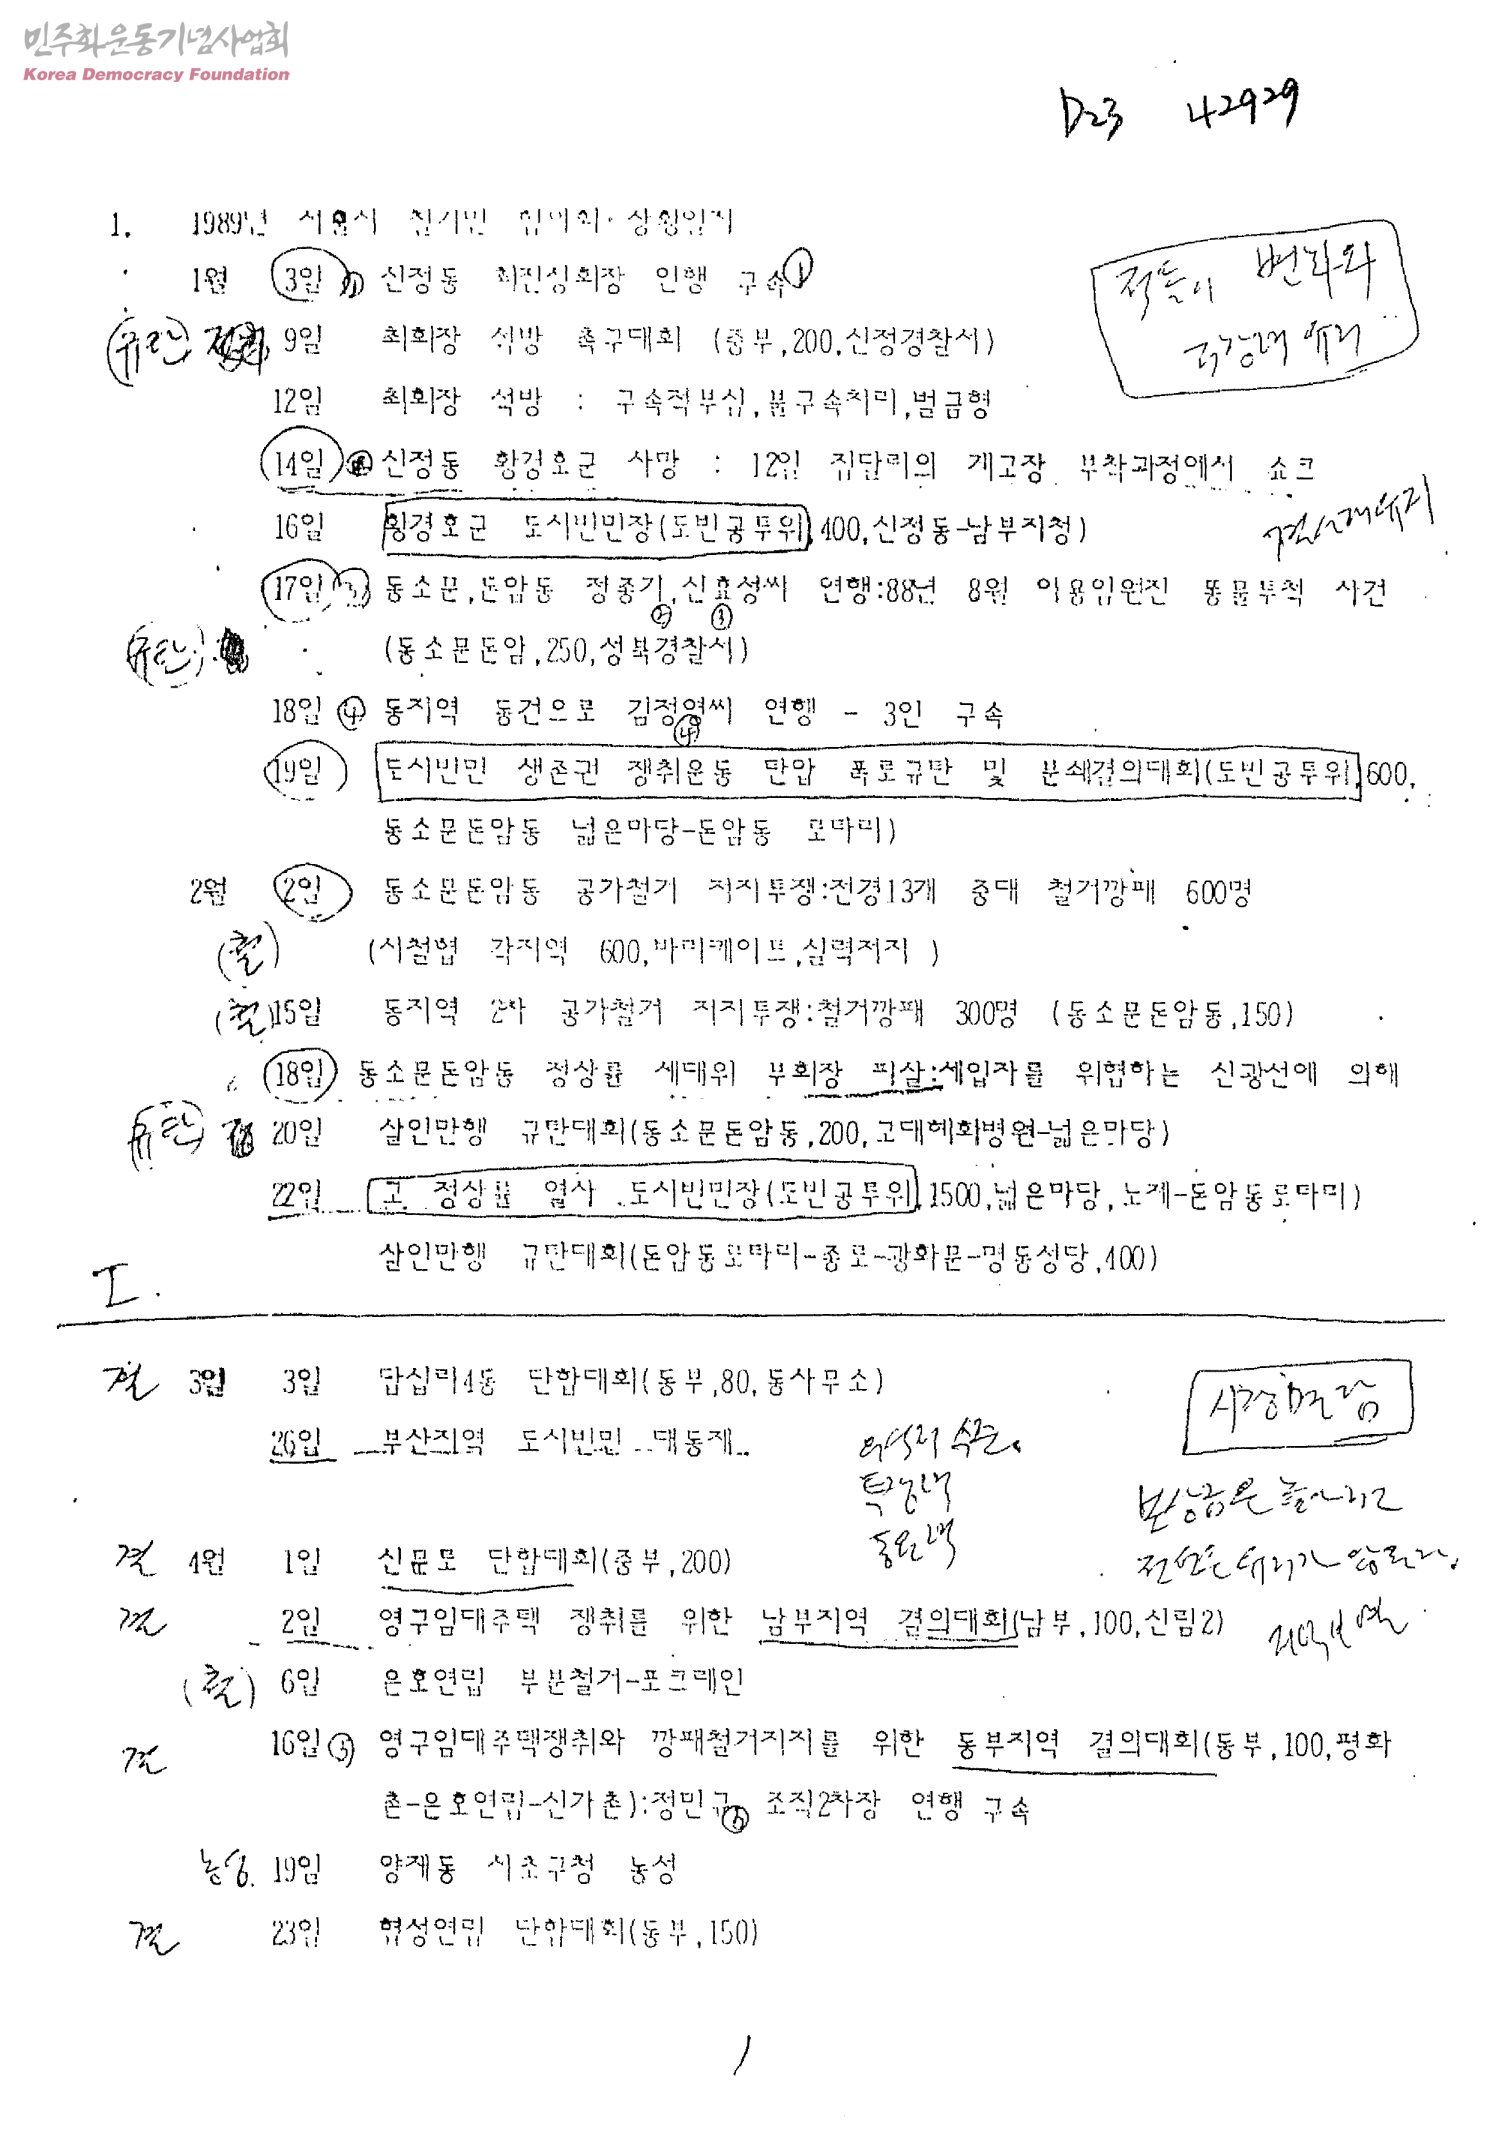 민주화운동기념사업회
Korea Democracy Foundation
D23 42929
1. 1989년 서울시 철거민 협의회 상황일지
1월 3일 ① 신정동 최진성회장 연행 구속 ①
적들의 변화와
(규탄) 9일 최회장 석방 촉구대회 (중부,200,신정경찰서)
12일 최회장 석방 : 구속적부심,불구속처리,벌금형
14일 신정동 황경호군 사망 : 12일 집달리의 계고장 부착과정에서 쇼크
16일 황경호군 도시빈민장(도빈공투위,400,신정동-남부지청)
17일 ③ 동소문,돈암동 정종기,신효성씨 연행:88년 8월 이용임원진 똥물투척 사건
② ③
(규탄) (동소문돈암,250,성북경찰서)
18일 ④ 동지역 동건으로 김정열씨 연행 - 3인 구속
④
19일 도시빈민 생존권 쟁취운동 탄압 폭로규탄 및 분쇄결의대회(도빈공투위,600,
동소문돈암동 넓은마당-돈암동 로타리)
2월 2일 동소문돈암동 공가철거 저지투쟁:전경13개 중대 철거깡패 600명
(철) (시철협 각지역 600,바리케이트,실력저지 )
(철) 15일 동지역 2차 공가철거 저지투쟁:철거깡패 300명 (동소문돈암동,150)
18일 동소문돈암동 정상률 세대위 부회장 피살:세입자를 위협하는 신광선에 의해
(규탄) 20일 살인만행 규탄대회(동소문돈암동,200,고대혜화병원-넓은마당)
22일 고 정상률 열사 도시빈민장(도빈공투위,1500,넓은마당,노제-돈암동로타리)
살인만행 규탄대회(돈암동로타리-종로-광화문-명동성당,400)
I.
결 3월 3일 답십리4동 단합대회(동부,80,동사무소)
시장면담
26일 부산지역 도시빈민 대동제
보상금은 늘어나고
결 4월 1일 신문로 단합대회(중부,200)
결 2일 영구임대주택 쟁취를 위한 남부지역 결의대회(남부,100,신림2)
(철) 6일 은호연립 부분철거-포크레인
결 16일 ③ 영구임대주택쟁취와 깡패철거저지를 위한 동부지역 결의대회(동부,100,평화
촌-은호연립-신가촌):정민규 ⑤ 조직2차장 연행 구속
농성 19일 양재동 서초구청 농성
결 23일 협성연립 단합대회(동부,150)
1